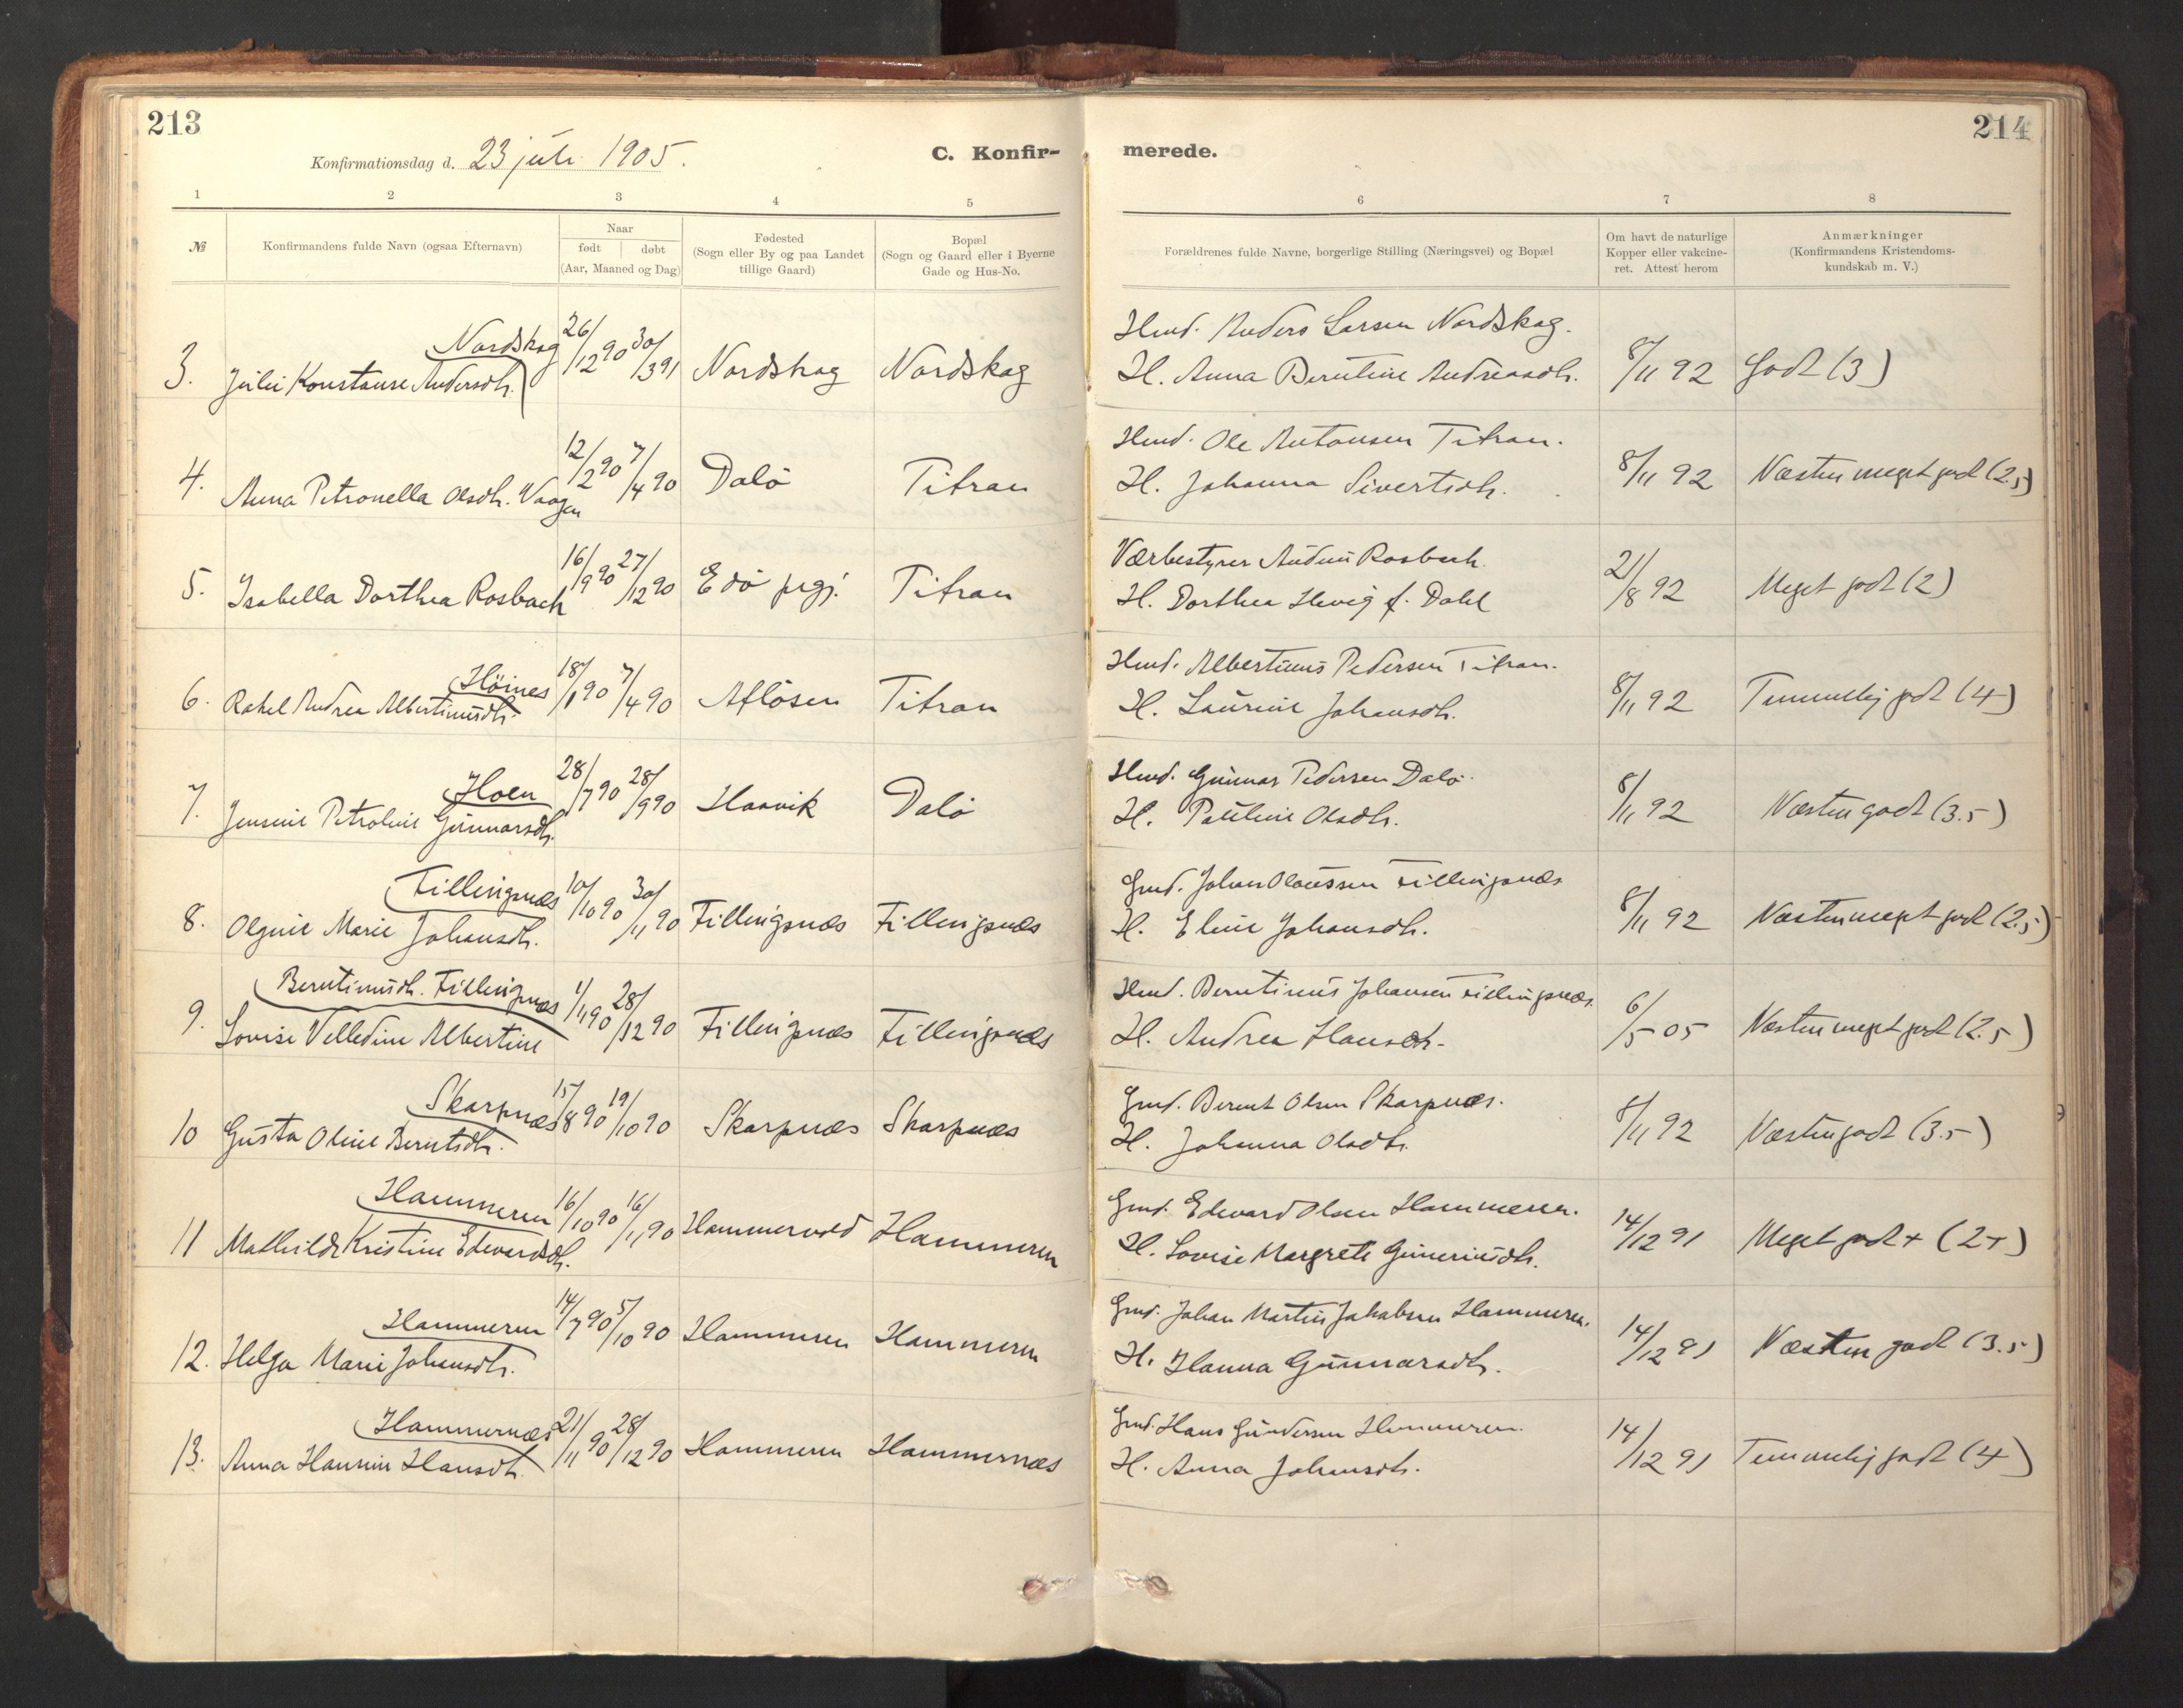 213
214
Konfirmationsdag d. 23 juli 1905.
C. Konfir-
merede.
1 2 3 4 5 6 7 8
№
Konfirmandens fulde Navn (ogsaa Efternavn)
Naar
født døbt
(Aar, Maaned og Dag)
Fødested
(Sogn eller By og paa Landet
tillige Gaard)
Bopæl
(Sogn og Gaard eller i Byerne
Gade og Hus-No.
Forældrenes fulde Navne, borgerlige Stilling (Næringsvei) og Bopæl
Om havt de naturlige
Kopper eller vakcine-
ret. Attest herom
Anmærkninger
(Konfirmandens Kristendoms-
kundskab m. V.)
Nordskog 26/12 90 30/3 91 Hmd. Anders Larsen Nordskag.
3. Julie Konstanse Andersdh. Nordskag Nordskag H. Anna Berntine Andreasdh. 8/11 92 godt (3)
12/2 90 7/4 90 Hmd. Ole Antonsen Titran.
4. Anna Petronella Olsdh. Vaagen Dalö Titran H. Johanna Sivertsdh. 8/11 92 Næsten meget godt (2,5)
16/9 90 27/12 90 Værbestyrer Audun Rosbach.
5. Isabella Dorthea Rosbach Edö prgj. Titran H. Dorthea Hevig f. Dahl 21/8 92 Meget godt (2)
Höines 18/1 90 7/4 90 Hmd. Albertinus Pedersen Titran.
6. Rakel Andrea Albertinusdh. Aflösen Titran H. Laurine Johansdh. 8/11 92 Temmelig godt (4)
Hoen 28/7 90 28/9 90 Hmd. Gunnar Pedersen Dalö.
7. Jensine Petroline Gunnarsdh. Haavik Dalö H. Pauline Olsdh. 8/11 92 Næsten godt (3.5)
Fillingsnæs 10/10 90 30/11 90 Gmd. Johan Olaussen Fillingsnæs
8. Olguie Marie Johansdh. Fillingsnæs Fillingsnæs H. Eline Johansdh. 8/11 92 Næsten meget godt (2,5)
Berntinusdh. Fillingsnæs 1/11 90 28/12 90 Hmd. Berntinus Johansen Fillingsnæs.
9. Lovise Velledine Albertine Fillingsnæs Fillingsnæs H. Andrea Hansdh. 6/5 05 Næsten meget godt (2.5)
Skarpnæs 15/8 90 19/10 90 Gmd. Bernt Olsen Skarpnæs.
10 Gusta Oline Berntsdh. Skarpnæs Skarpnæs H. Johanna Olsdh. 8/11 92 Næsten godt (3.5)
Hammeren 16/10 90 16/11 90 Gmd. Edevard Olsen Hammeren.
11 Mathilde Kristine Edevardsdh. Hammervold Hammeren H. Lovise Margrete Guneriusdh. 14/12 91 Meget godt + (2+)
Hammeren 14/7 90 5/10 90 Gmd. Johan Martin Jakobsen Hammeren.
12. Helga Marie Johansdh. Hammeren Hammeren H. Hanna Gunnarsdh. 14/12 91 Næsten godt (3.5)
Hammernæs 21/11 90 28/12 90 Gmd. Hans Gundersen Hammeren.
13. Anna Hansine Hansdh. Hammeren Hammernæs H. Anna Johansdh. 14/12 91 Temmelig godt (4)